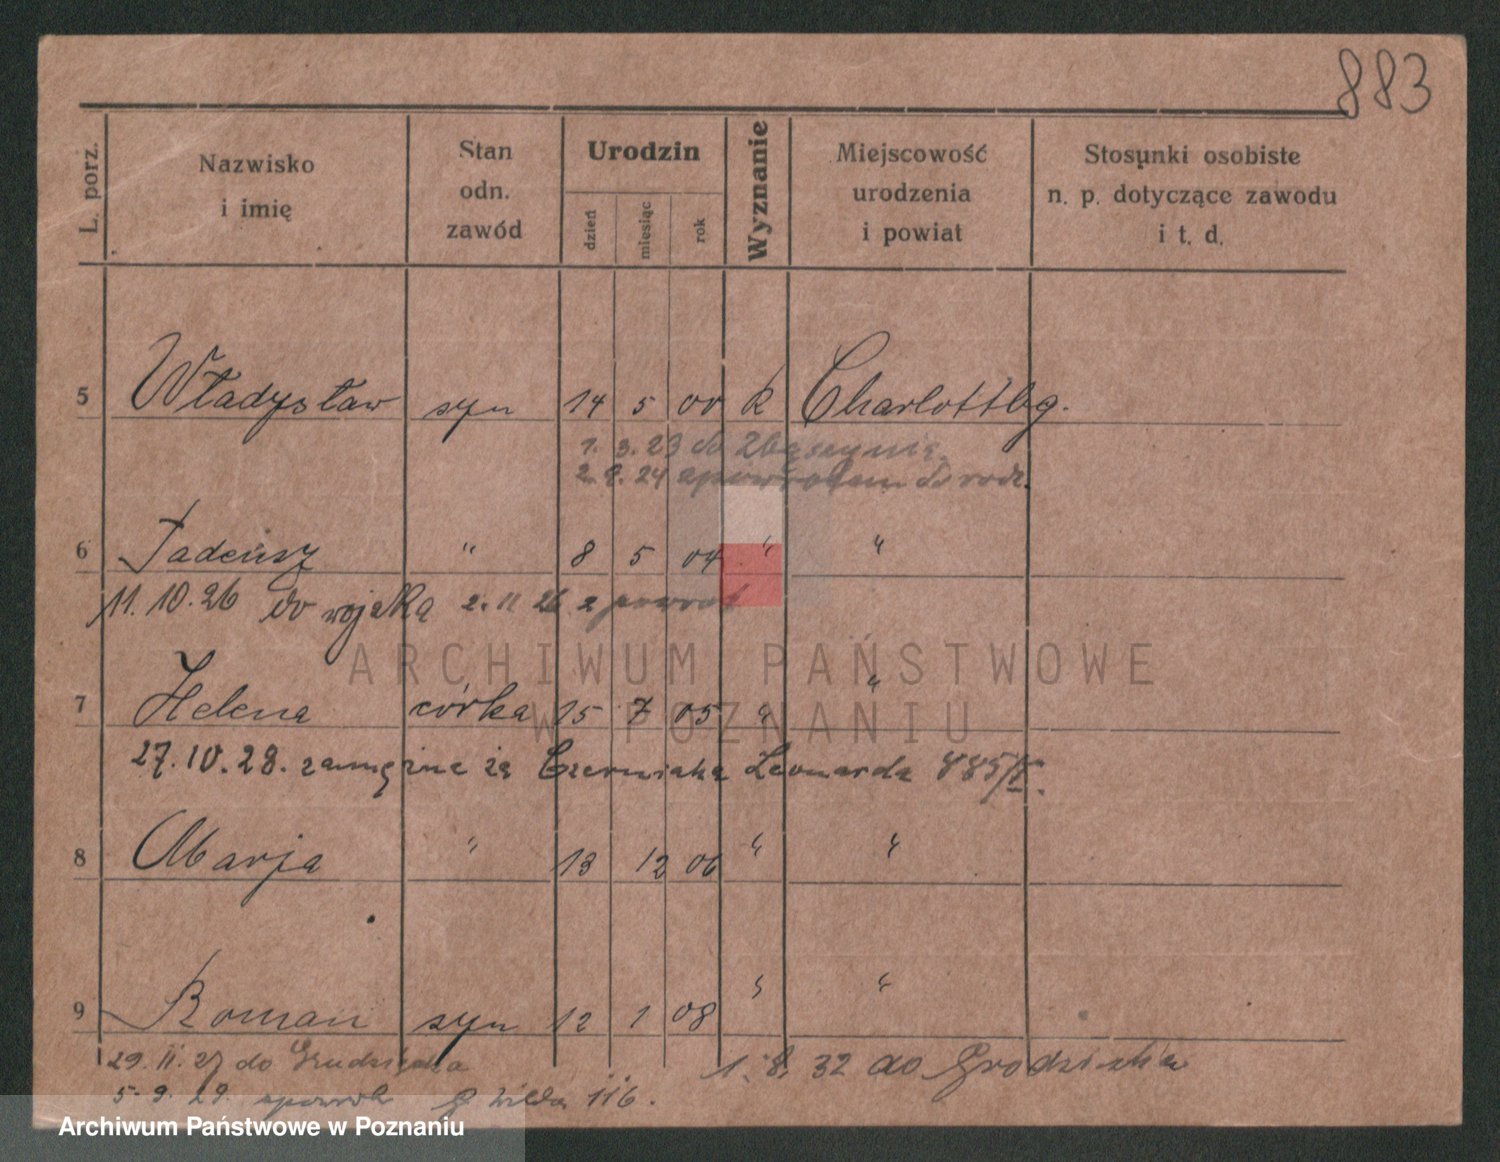 883
L. porz.
Nazwisko i imię
Stan odn. zawód
Urodzin
dzień miesiąc rok
Wyznanie
Miejscowość urodzenia i powiat
Stosunki osobiste n. p. dotyczące zawodu i t. d.
5 Władysław syn 14 5 00 k Charlottbg.
1. 3. 23 do Zbąszynia
2. 9. 24 spowrotem do rodz.
6 Tadeusz " 8 5 04 " "
11. 10. 26 do wojska 2. 11 26 z powrot
ARCHIWUM PAŃSTWOWE
7 Helena córka 15 7 05 " "
W POZNANIU
27. 10. 28. zamężna za Czerniaka Leonarda 885/
8 Marja " 13 12 06 " "
9 Roman syn 12 1 08 " "
29. 11. 27 do Grudziądza
1. 8. 32 do Grodziska
5. 9. 29. spowrot G Wilda 116.
Archiwum Państwowe w Poznaniu